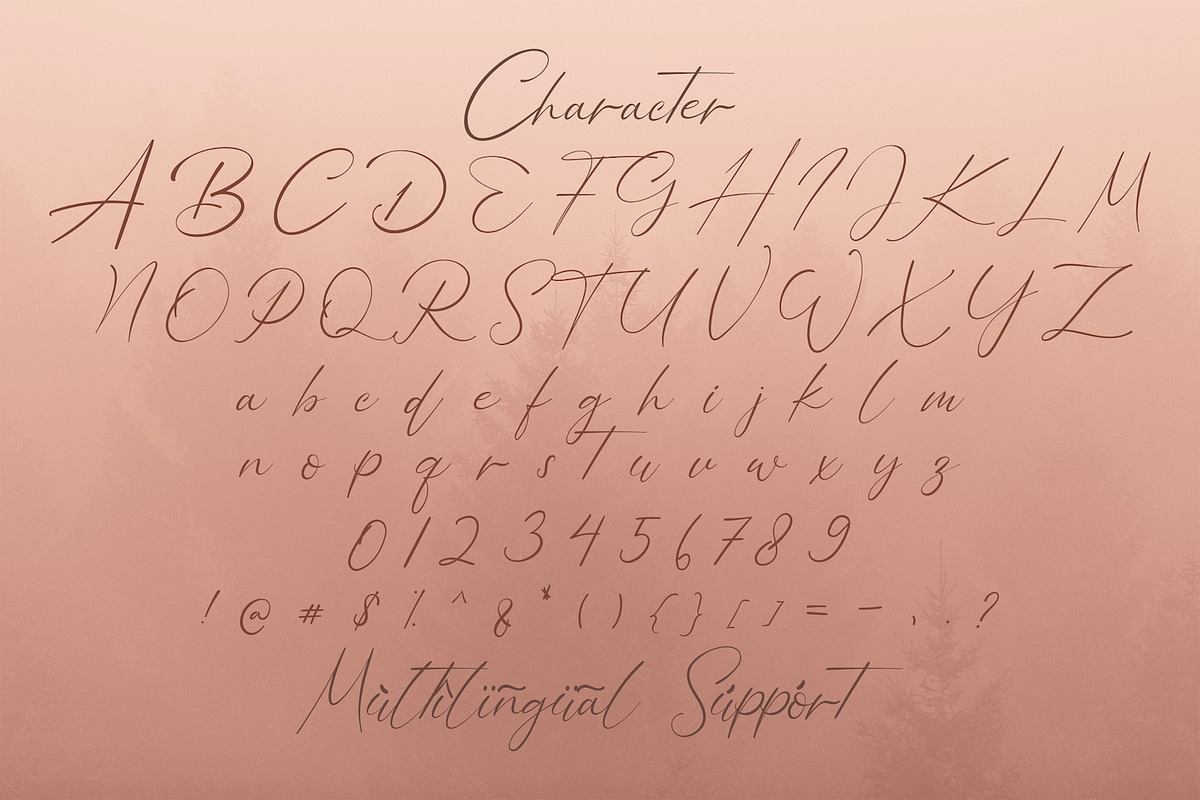 Character
A B C D E F G H I J K L M
N O P Q R S T U V W X Y Z
a b c d e f g h i j k l m
n o p q r s t u v w x y z
0 1 2 3 4 5 6 7 8 9
! @ # $ % ^ & * ( ) { } [ ] = - , . ?
Mùltîlïñgüãl Súppórt